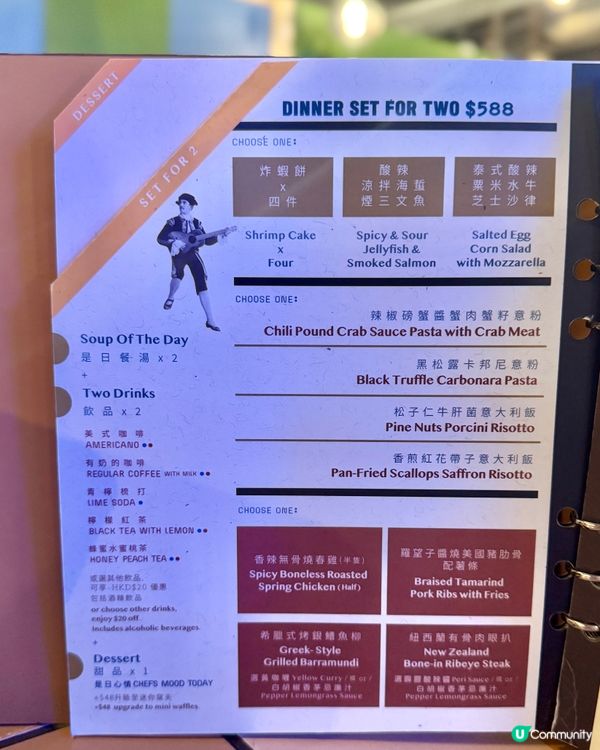 DESSERT
SET FOR 2
DINNER SET FOR TWO $588
CHOOSE ONE:
炸蝦餅
x
四件
Shrimp Cake
x
Four
酸辣
涼拌海蜇
煙三文魚
Spicy & Sour
Jellyfish &
Smoked Salmon
泰式酸辣
粟米水牛
芝士沙律
Salted Egg
Corn Salad
with Mozzarella
CHOOSE ONE:
辣椒磅蟹醬蟹肉蟹籽意粉
Chili Pound Crab Sauce Pasta with Crab Meat
黑松露卡邦尼意粉
Black Truffle Carbonara Pasta
松子仁牛肝菌意大利飯
Pine Nuts Porcini Risotto
香煎紅花帶子意大利飯
Pan-Fried Scallops Saffron Risotto
CHOOSE ONE:
香辣無骨燒春雞(半隻)
Spicy Boneless Roasted
Spring Chicken (Half)
羅望子醬燒美國豬肋骨
配薯條
Braised Tamarind
Pork Ribs with Fries
希臘式烤銀鱈魚柳
Greek-Style
Grilled Barramundi
選黃咖喱 Yellow Curry / 或 or /
白胡椒香茅忌廉汁
Pepper Lemongrass Sauce
紐西蘭有骨肉眼扒
New Zealand
Bone-in Ribeye Steak
Peri Sauce / 或 or /
白胡椒香茅忌廉汁
Pepper Lemongrass Sauce
Soup Of The Day
是日餐湯 x 2
+
Two Drinks
飲品 x 2
美式咖啡
AMERICANO
有奶的咖啡
REGULAR COFFEE WITH MILK
青檸梳打
LIME SODA
檸檬紅茶
BLACK TEA WITH LEMON
蜂蜜水蜜桃茶
HONEY PEACH TEA
或選其他飲品,
可享-HKD$20 優惠
包括酒精飲品
or choose other drinks,
enjoy $20 off.
Includes alcoholic beverages.
+
Dessert
甜品 x 1
是日心情 CHEFS MOOD TODAY
+$48升級至迷你窩夫
+$48 upgrade to mini waffles
U Community